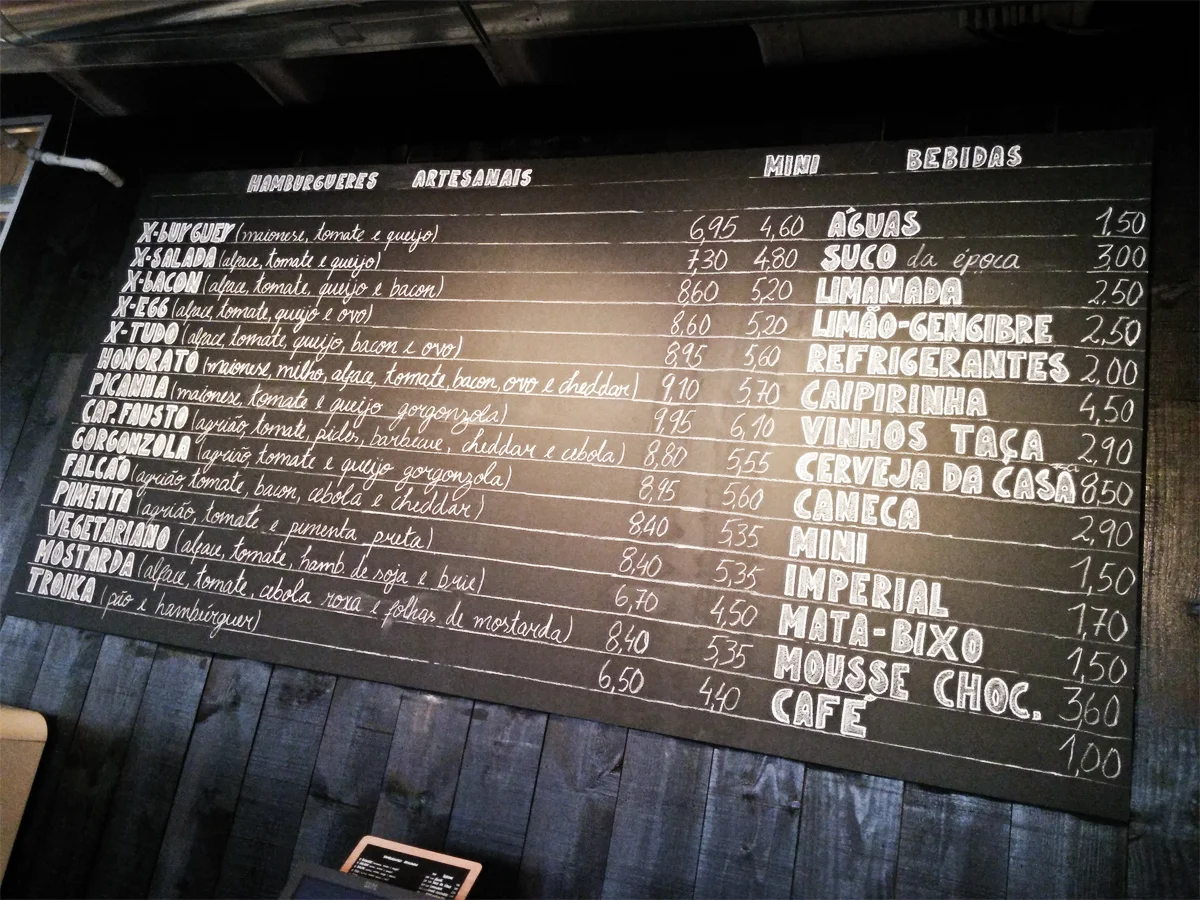 HAMBURGUERES ARTESANAIS MINI BEBIDAS
X-BURGUER (maionese, tomate e queijo) 6,95 4,60 ÁGUAS 1,50
X-SALADA (alface, tomate e queijo) 7,30 4,80 SUCO da época 3,00
X-BACON (alface, tomate, queijo e bacon) 8,60 5,20 LIMANADA 2,50
X-EGG (alface, tomate, queijo e ovo) 8,60 5,20 LIMÃO-GENGIBRE 2,50
X-TUDO (alface, tomate, queijo, bacon e ovo) 8,95 5,60 REFRIGERANTES 2,00
HONORATO (maionese, milho, alface, tomate, bacon, ovo e cheddar) 9,10 5,70 CAIPIRINHA 4,50
PICANHA (maionese, tomate e queijo gorgonzola) 9,95 6,10 VINHOS TAÇA 2,90
CAP. FAUSTO (agrião, tomate, picles, barbecue, cheddar e cebola) 8,80 5,55 CERVEJA DA CASA 8,50
GORGONZOLA (agrião, tomate e queijo gorgonzola) 8,95 5,60 CANECA 2,90
FALCÃO (agrião, tomate, bacon, cebola e cheddar) 8,40 5,35 MINI 1,50
PIMENTA (agrião, tomate e pimenta preta) 8,40 5,35 IMPERIAL 1,70
VEGETARIANO (alface, tomate, hamb. de soja e brie) 6,70 4,50 MATA-BIXO 1,50
MOSTARDA (alface, tomate, cebola roxa e folhas de mostarda) 8,40 5,35 MOUSSE CHOC. 3,60
TROIKA (pão e hambúrguer) 6,50 4,40 CAFÉ 1,00